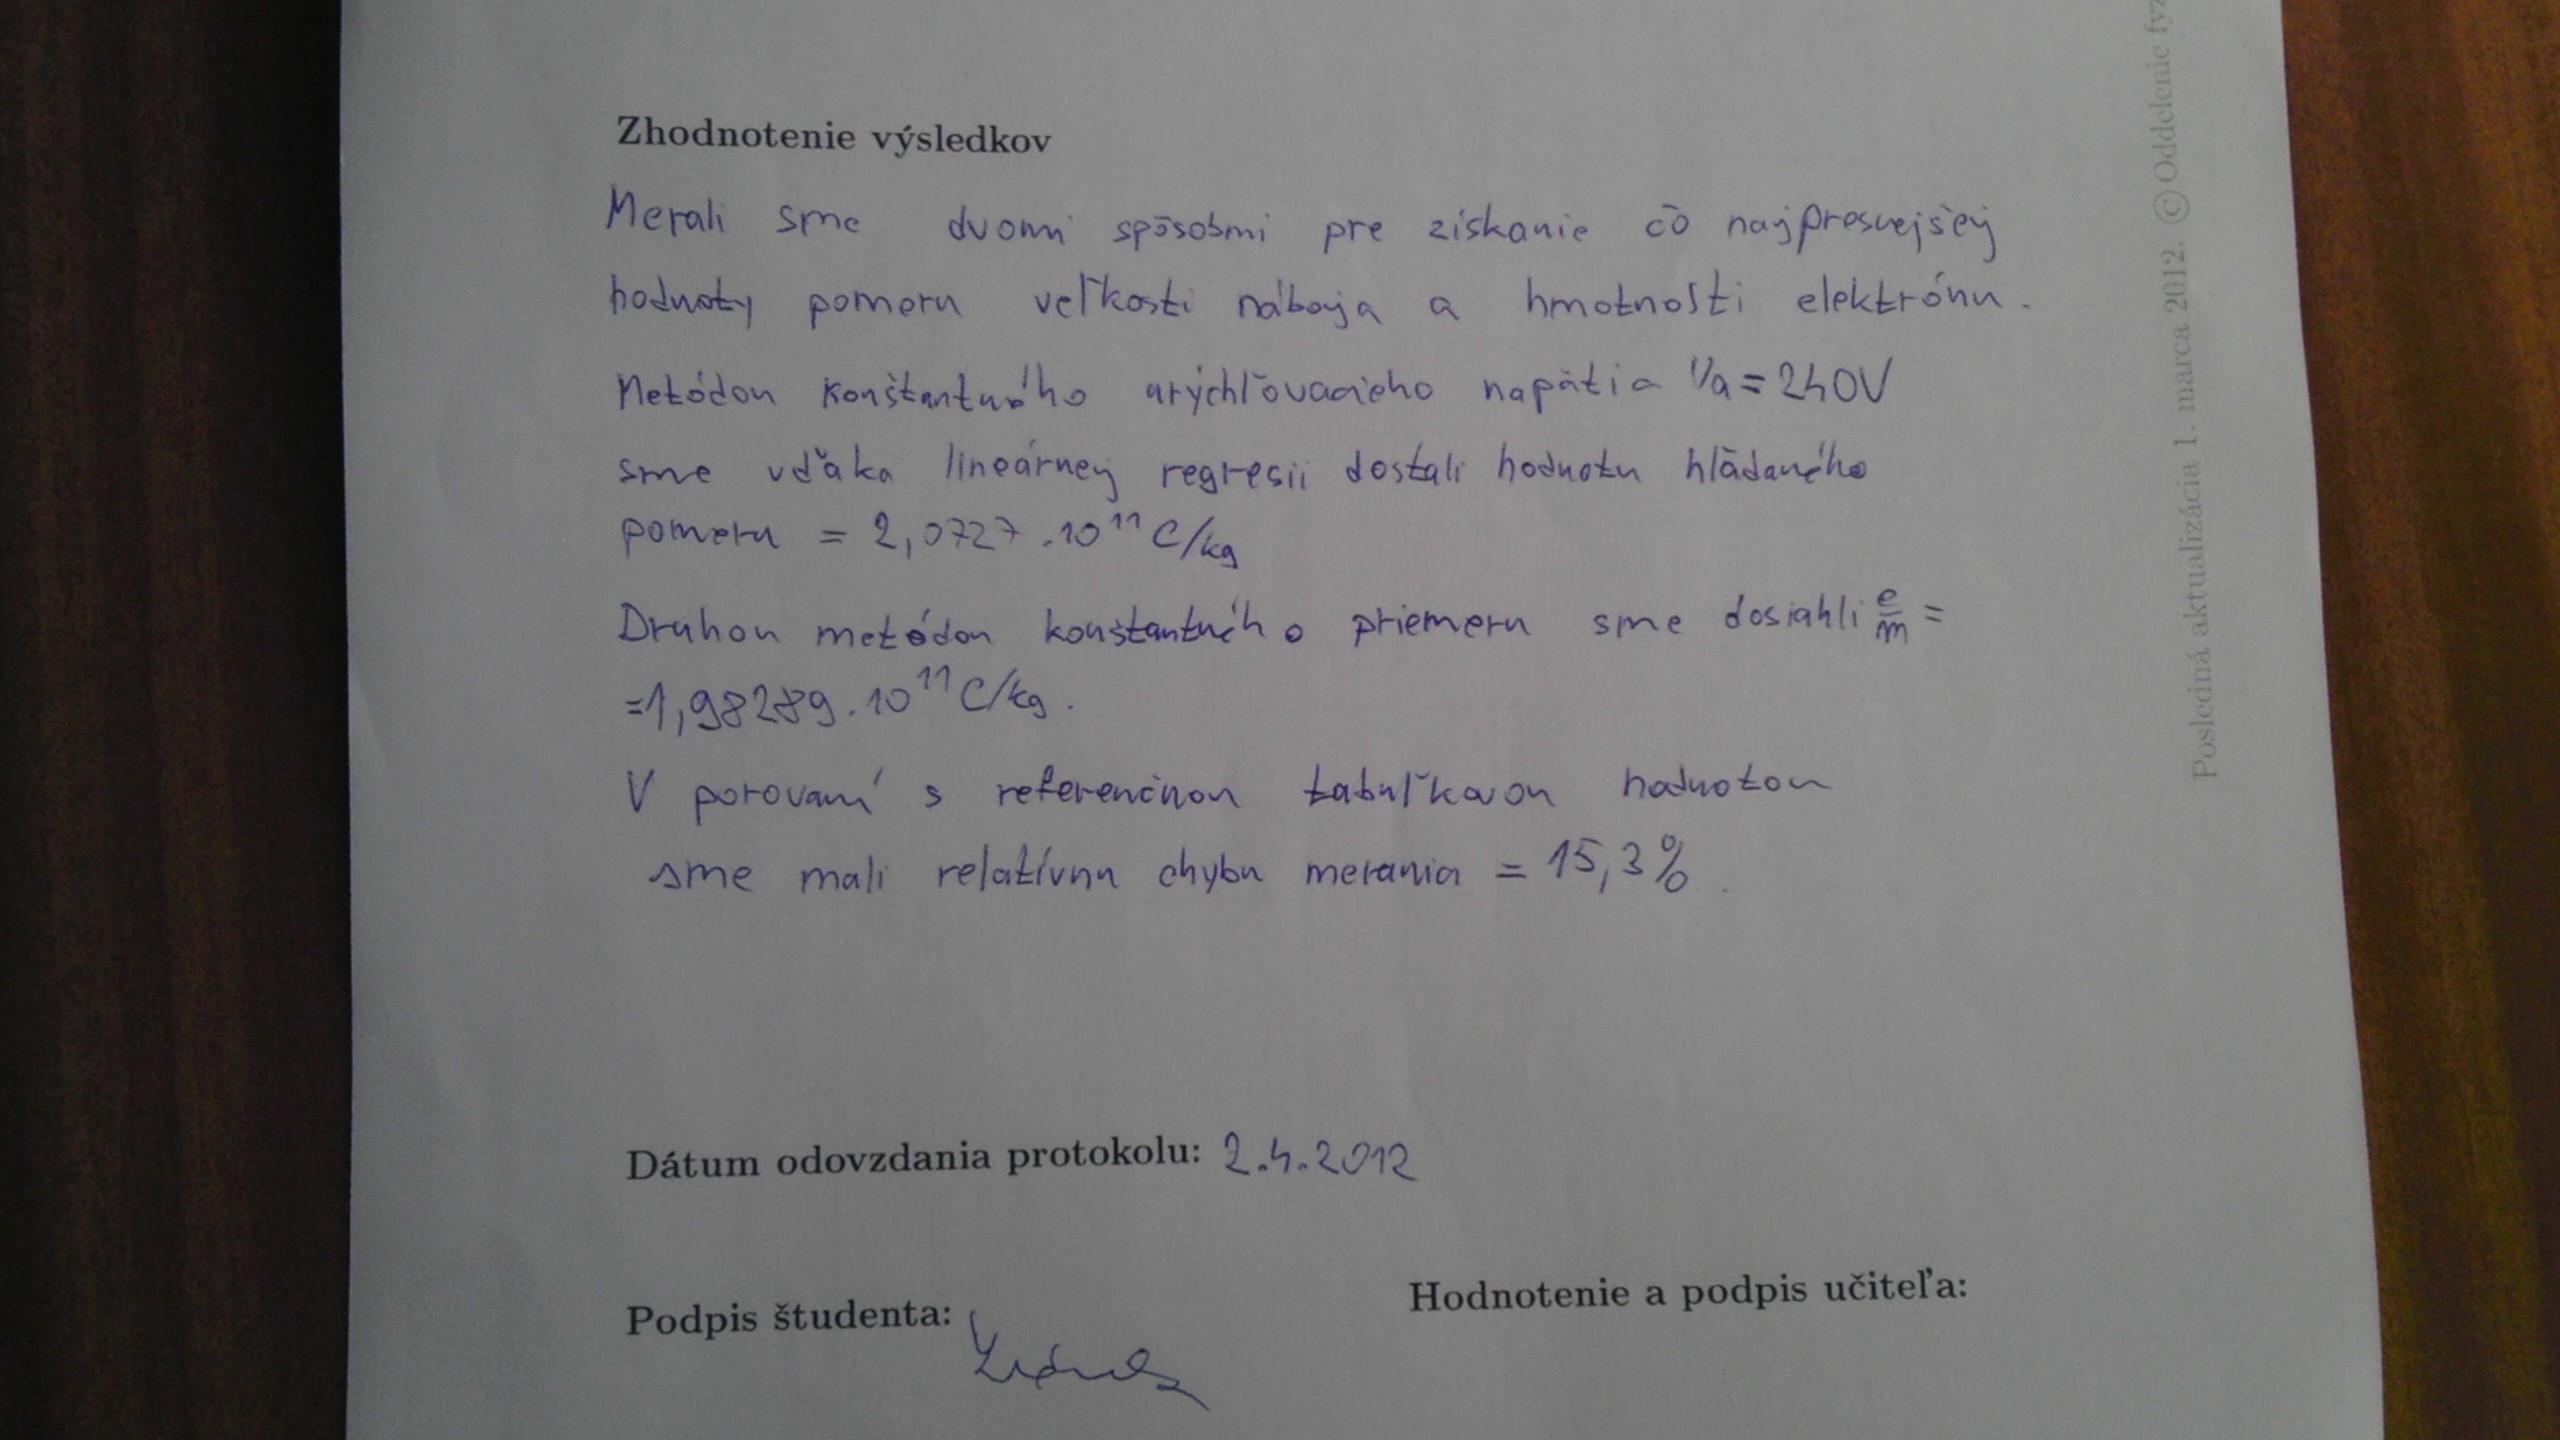 Zhodnotenie výsledkov
Merali sme dvomi spôsobmi pre získanie čo najpresnejšej
hodnoty pomeru veľkosti náboja a hmotnosti elektrónu.
Metódou konštantného urýchľovacieho napätia Va = 240V
sme vďaka lineárnej regresii dostali hodnotu hľadaného
pomeru = 2,0727 . 10¹¹ C/kg
Druhou metódou konštantného priemeru sme dosiahli e/m =
=1,98289 . 10¹¹ C/kg.
V porovaní s referenčnou tabuľkovou hodnotou
sme mali relatívnu chybu merania = 15,3%
Dátum odovzdania protokolu: 2.4.2012
Podpis študenta:
Hodnotenie a podpis učiteľa:
Posledná aktualizácia 1. marca 2012. ©Oddelenie